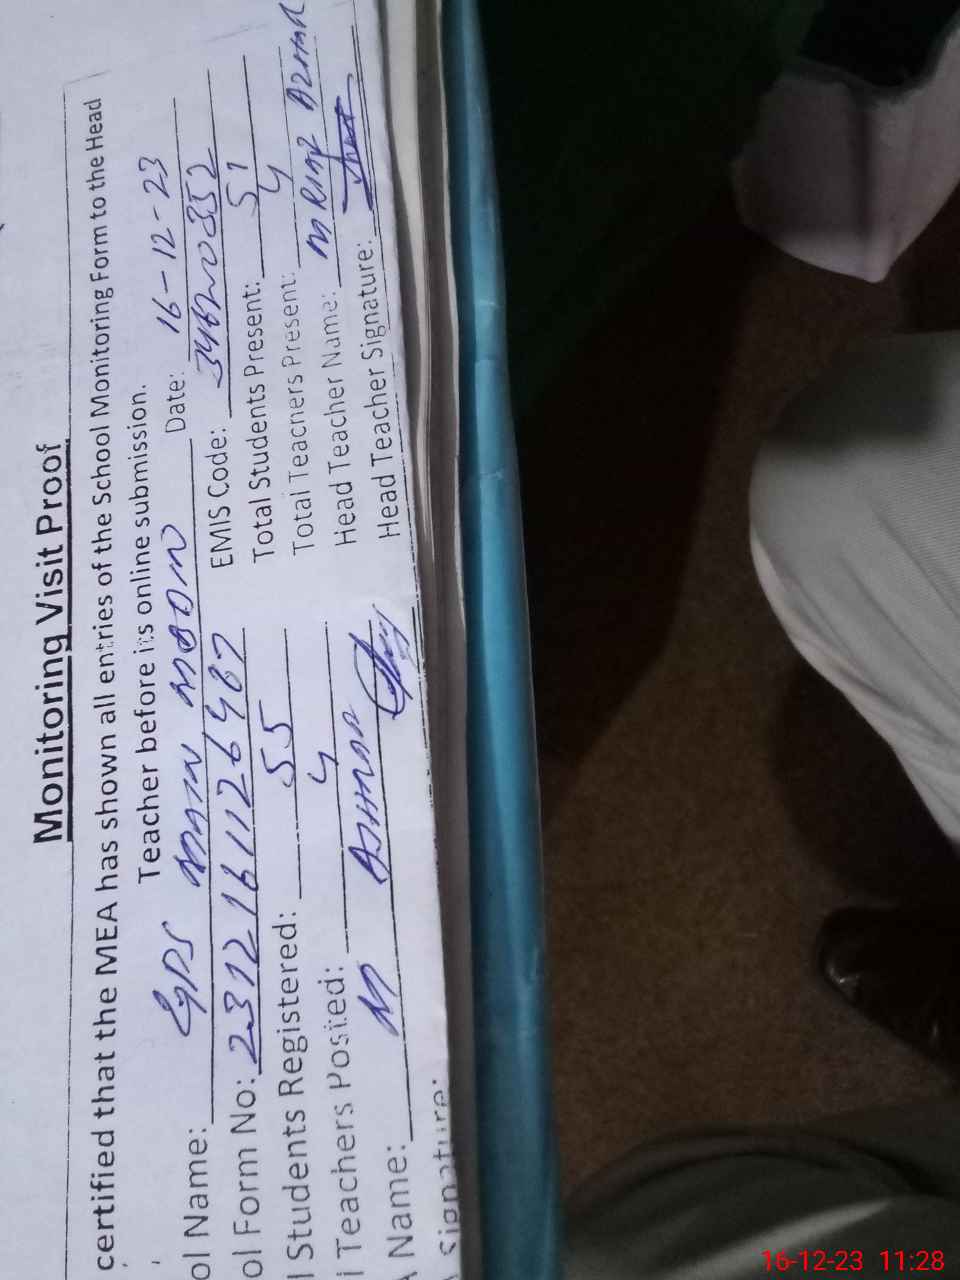 Monitoring Visit Proof
certified that the MEA has shown all entries of the School Monitoring Form to the Head
Teacher before its online submission.
ol Name: GPS Date: 16-12-23
ol Form No: 2312161126487 EMIS Code:
l Students Registered: 55 Total Students Present: 51
l Teachers Posted: 4 Total Teachers Present: 4
Name: M Head Teacher Name:
Signature: Head Teacher Signature:
16-12-23 11:28